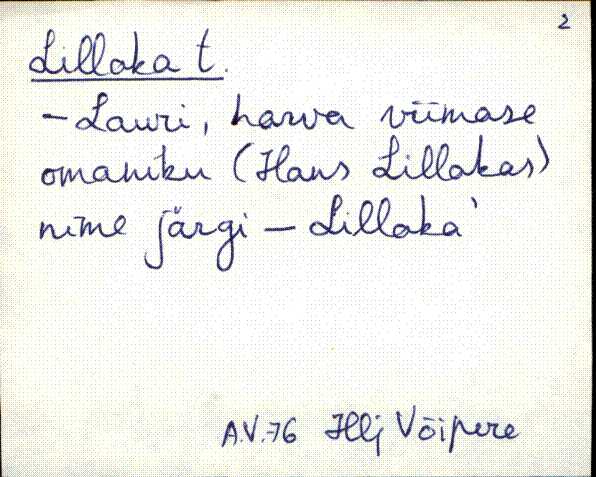 2
Lillaka t.
- Lauri, harva viimase
omaniku (Hans Lillakas)
nime järgi - Lillaka'
A.V.76 Hlj Võipere